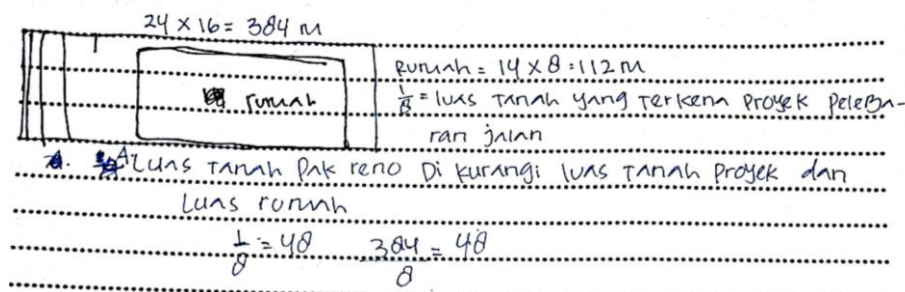 24 × 16 = 384 m
Rumah = 14 × 8 = 112 m
rumah
1/8 = luas tanah yang terkena proyek peleba-
ran jalan
A luas tanah pak reno Di kurangi luas tanah proyek dan
luas rumah
1/8 = 48 384/8 = 48